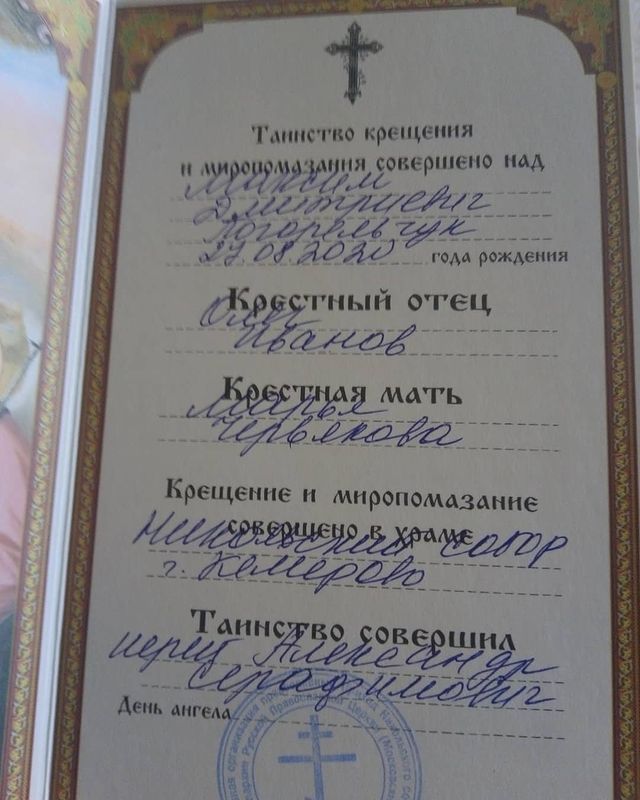 Таинство крещения
и миропомазания совершено над
Максим
Дмитриевич
Погорельчук
27.08.2020 года рождения
Крестный отец
Олег
Иванов
Крестная мать
Марья
Червякова
Крещение и миропомазание
совершено в храме
Никольский собор
г. Кемерово
Таинство совершил
иерей Александр
Серафимович
День ангела
Русской Православной Церкви (Московский